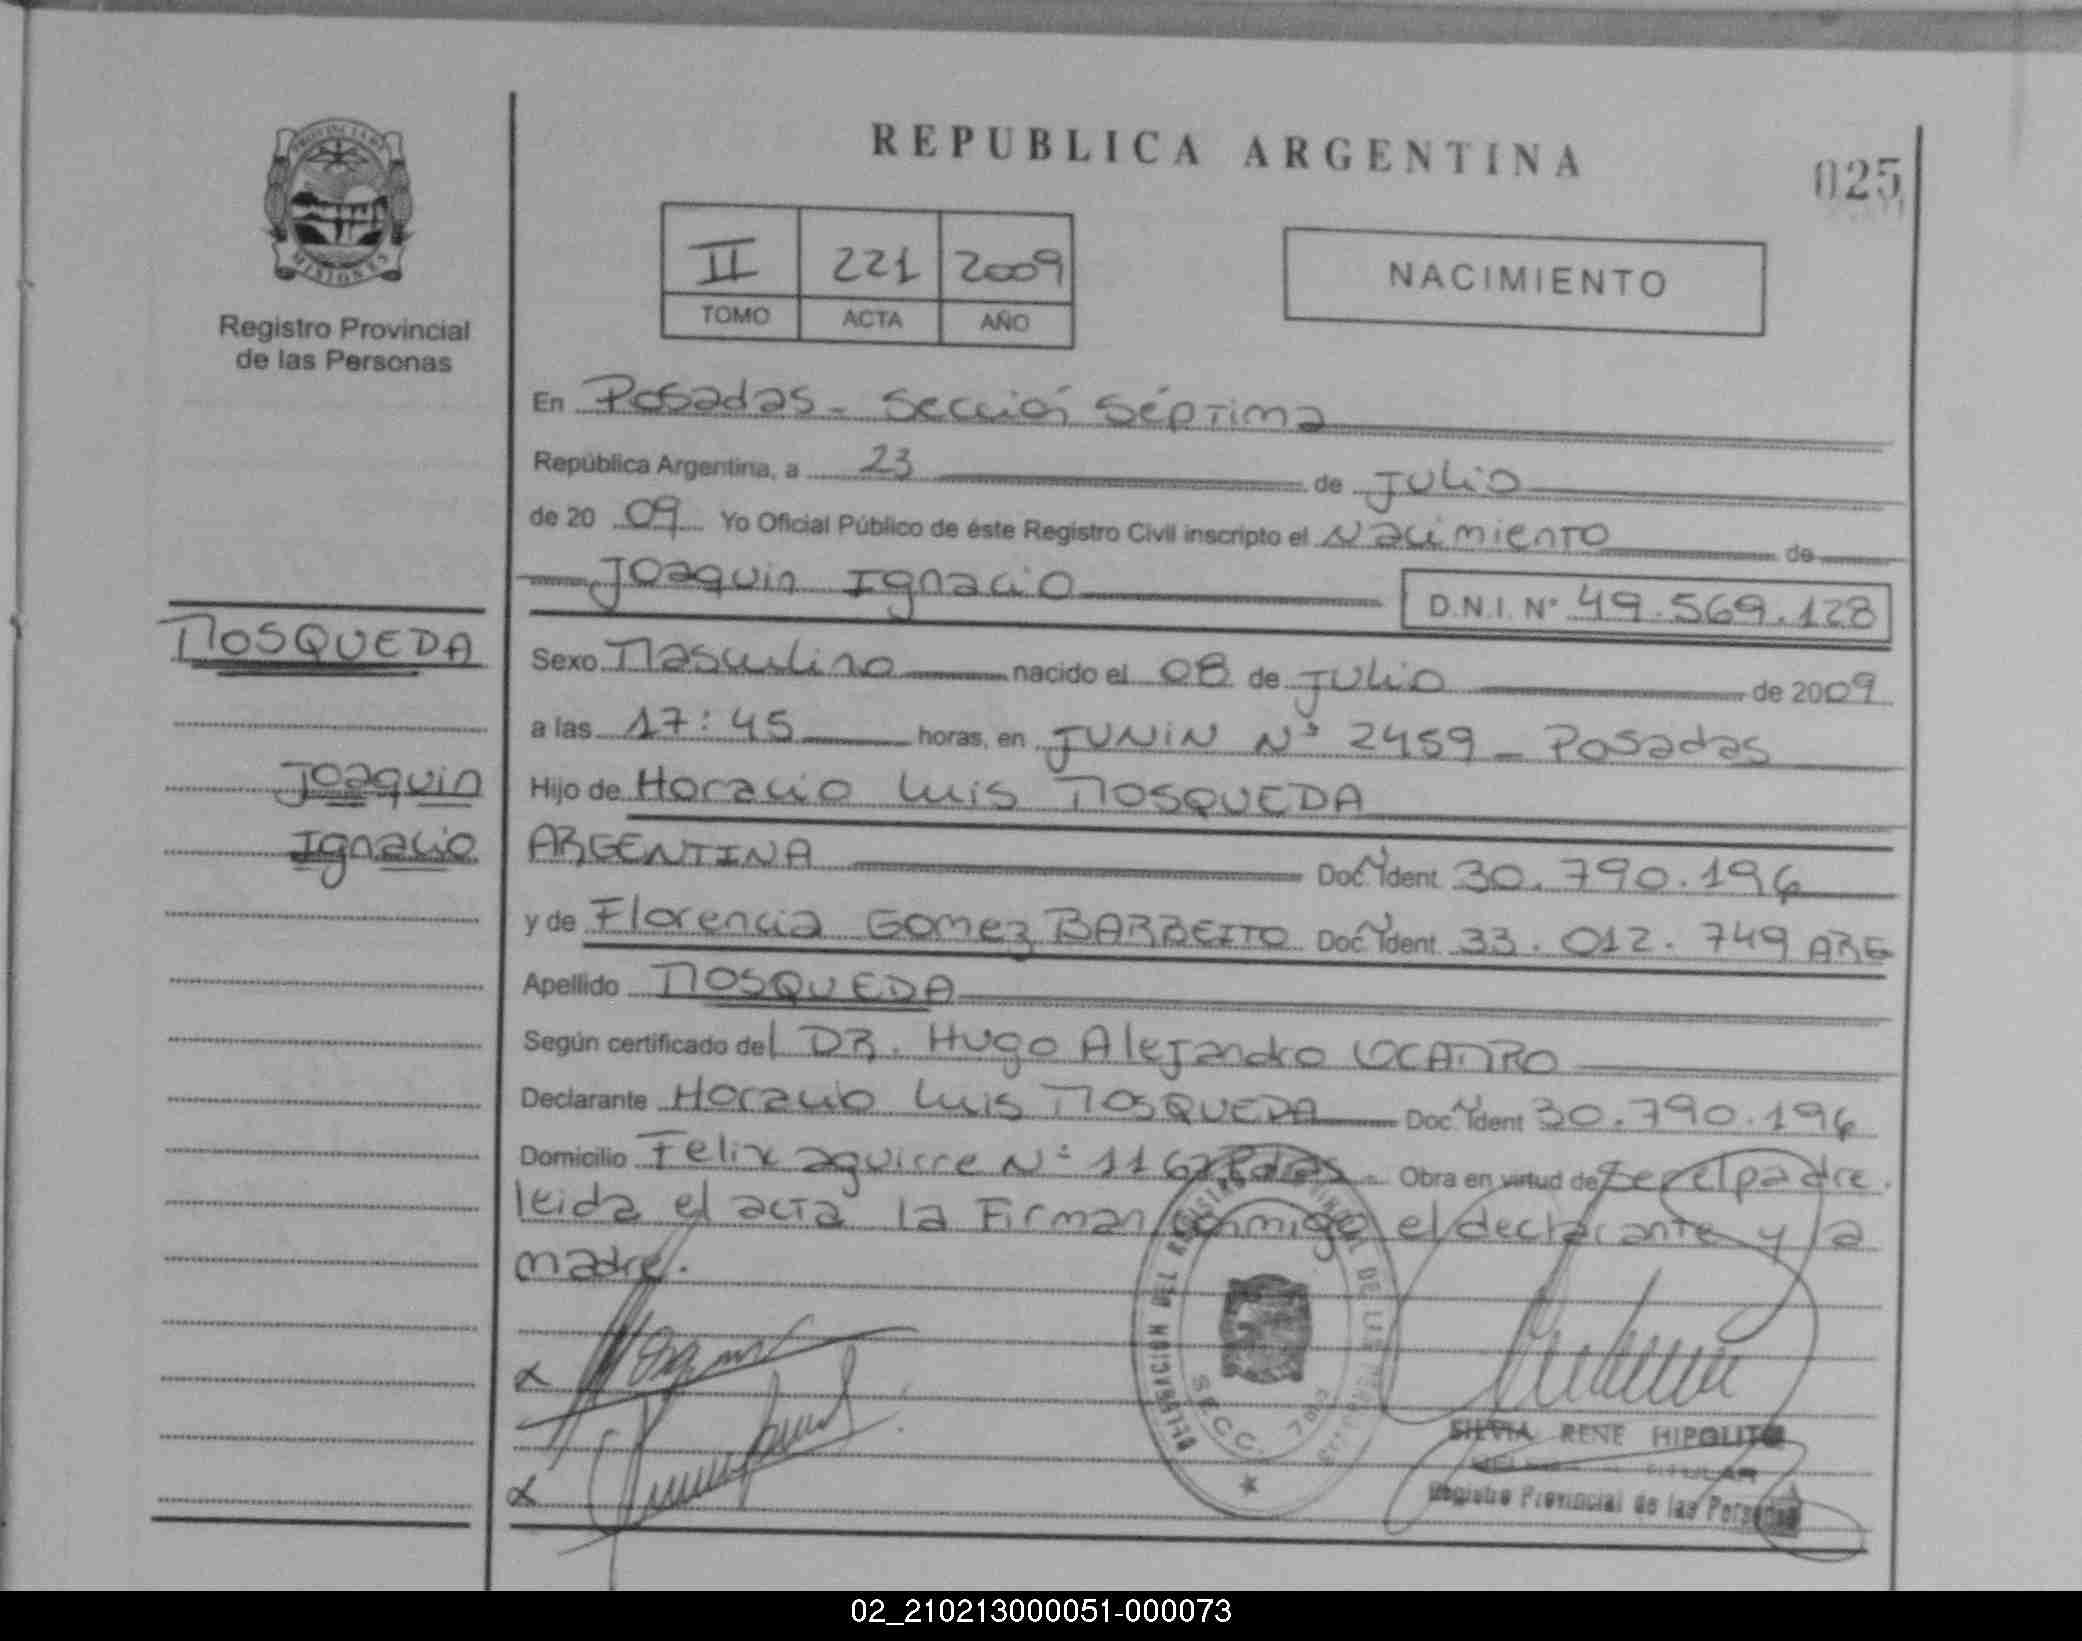 REPUBLICA ARGENTINA
025
PROVINCIA DE
MISIONES
Registro Provincial
de las Personas
II 221 2009
TOMO ACTA AÑO
NACIMIENTO
En Posadas - Sección Séptima
República Argentina, a 23 de Julio
de 20 09 Yo Oficial Público de éste Registro Civil inscripto el Nacimiento de
Joaquin Ignacio D.N.I. Nº 49.569.128
MOSQUEDA
Joaquin
Ignacio
Sexo Masculino nacido el 08 de Julio de 2009
a las 17:45 horas, en JUNIN Nº 2459 - Posadas
Hijo de Horacio Luis MOSQUEDA
ARGENTINA Doc. Ident. 30.790.196
y de Florencia Gomez BARBEITO Doc. Ident. 33.012.749 ARG
Apellido MOSQUEDA
Según certificado del DR. Hugo Alejandro OCAMPO
Declarante Horacio Luis MOSQUEDA Doc. Ident 30.790.196
Domicilio Felix aguirre Nº Pdas. Obra en virtud de Ser el padre.
leida el acta la Firman conmigo el declarante y la
madre.
DEL REGISTRO PROVINCIAL DE LAS PERSONAS
SECC. 7ma
SILVIA RENE HIPOLITO
TITULAR
Registro Provincial de las Personas
02_210213000051-000073